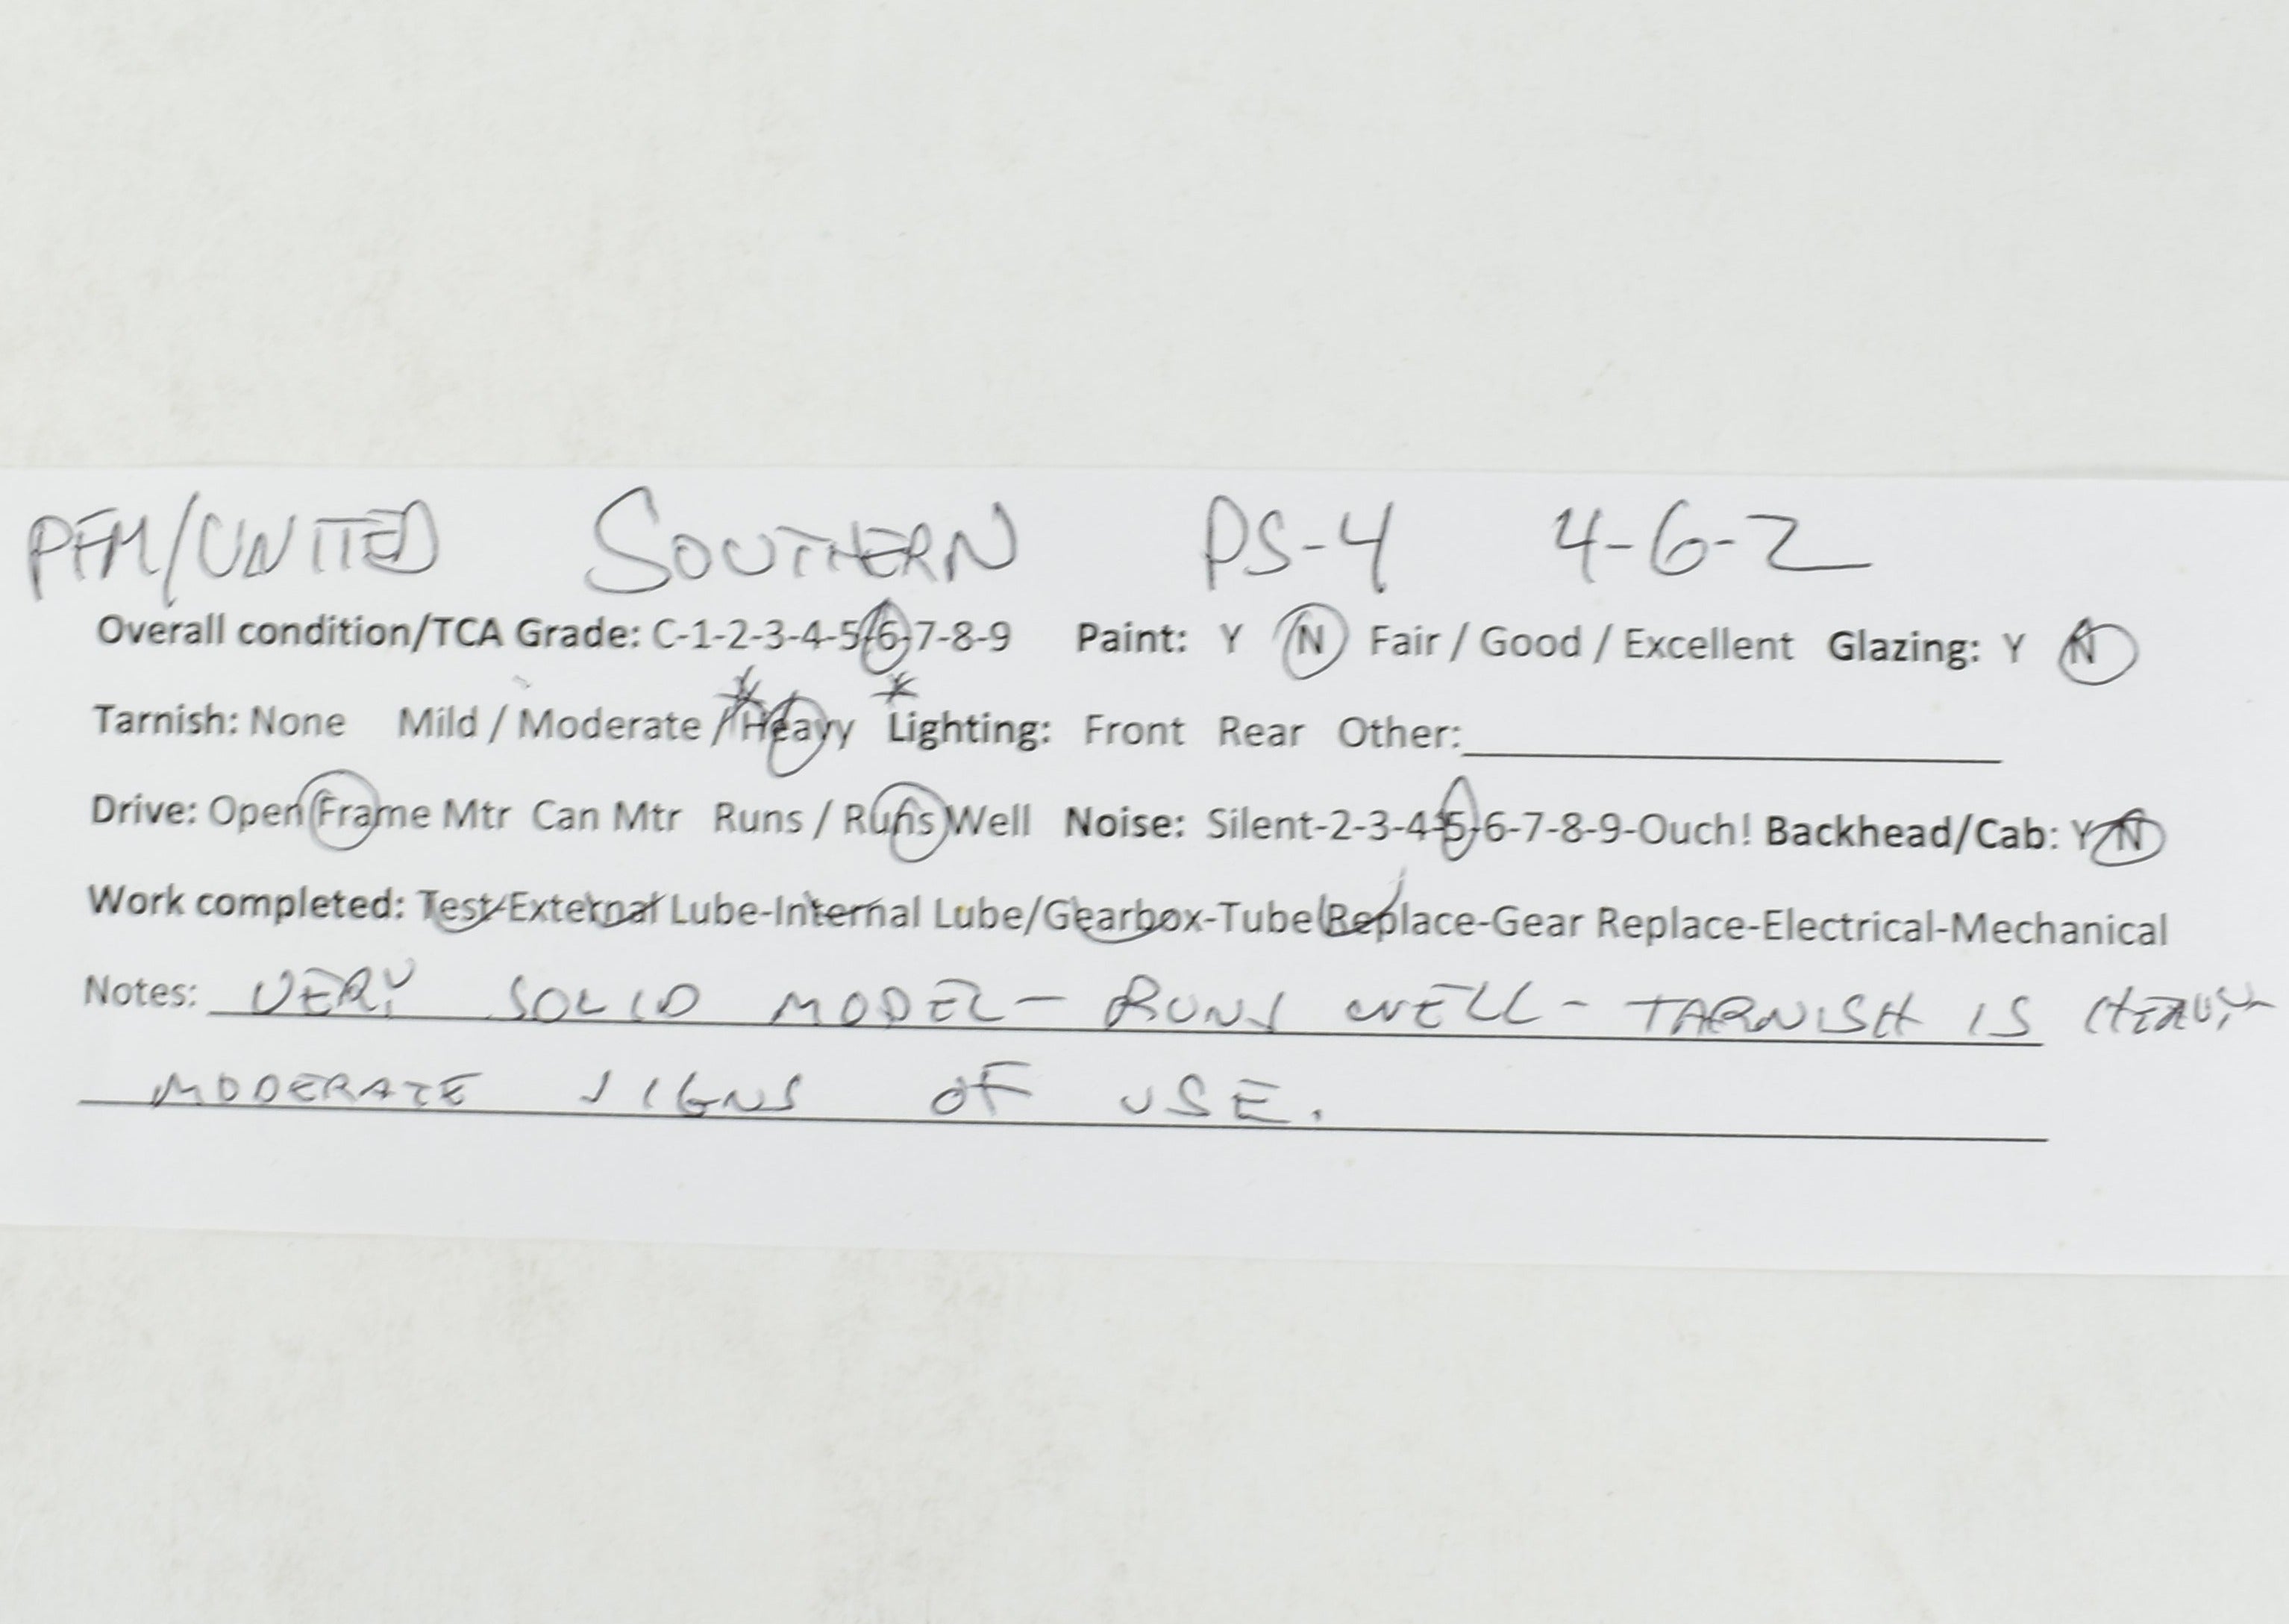 PFM/UNITED SOUTHERN PS-4 4-6-2
Overall condition/TCA Grade: C-1-2-3-4-5-6-7-8-9 Paint: Y N Fair / Good / Excellent Glazing: Y N
Tarnish: None Mild / Moderate / Heavy Lighting: Front Rear Other:
Drive: Open Frame Mtr Can Mtr Runs / Runs Well Noise: Silent-2-3-4-5-6-7-8-9-Ouch! Backhead/Cab: Y N
Work completed: Test-External Lube-Internal Lube/Gearbox-Tube Replace-Gear Replace-Electrical-Mechanical
Notes: VERY SOLID MODEL - RUNS WELL - TARNISH IS HEAVY-
MODERATE SIGNS OF USE.